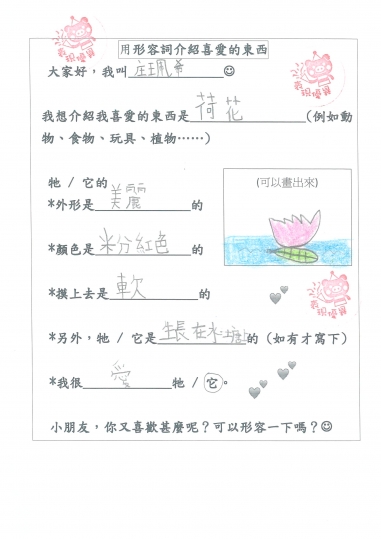 用形容詞介紹喜愛的東西
大家好，我叫莊珮希☺
我想介紹我喜愛的東西是荷花(例如動
物、食物、玩具、植物……)
牠 / 它的
(可以畫出來)
*外形是美麗的
*顏色是粉紅色
*摸上去是軟的
*另外，牠 / 它是生長在水塘的 (如有才寫下)
*我很愛牠 / 它。
小朋友，你又喜歡甚麼呢？可以形容一下嗎？☺
表現優異